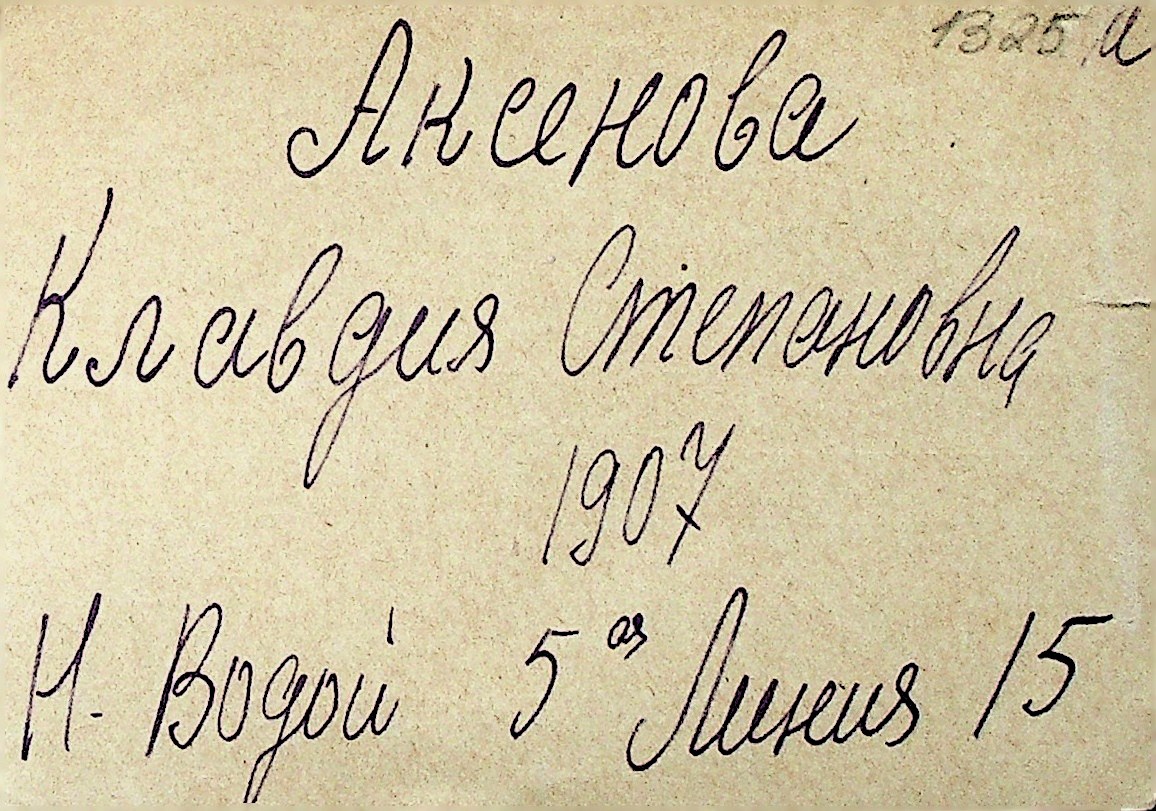 1325 И
Аксенова
Клавдия Степановна
1907
Н. Водой 5ая Линия 15